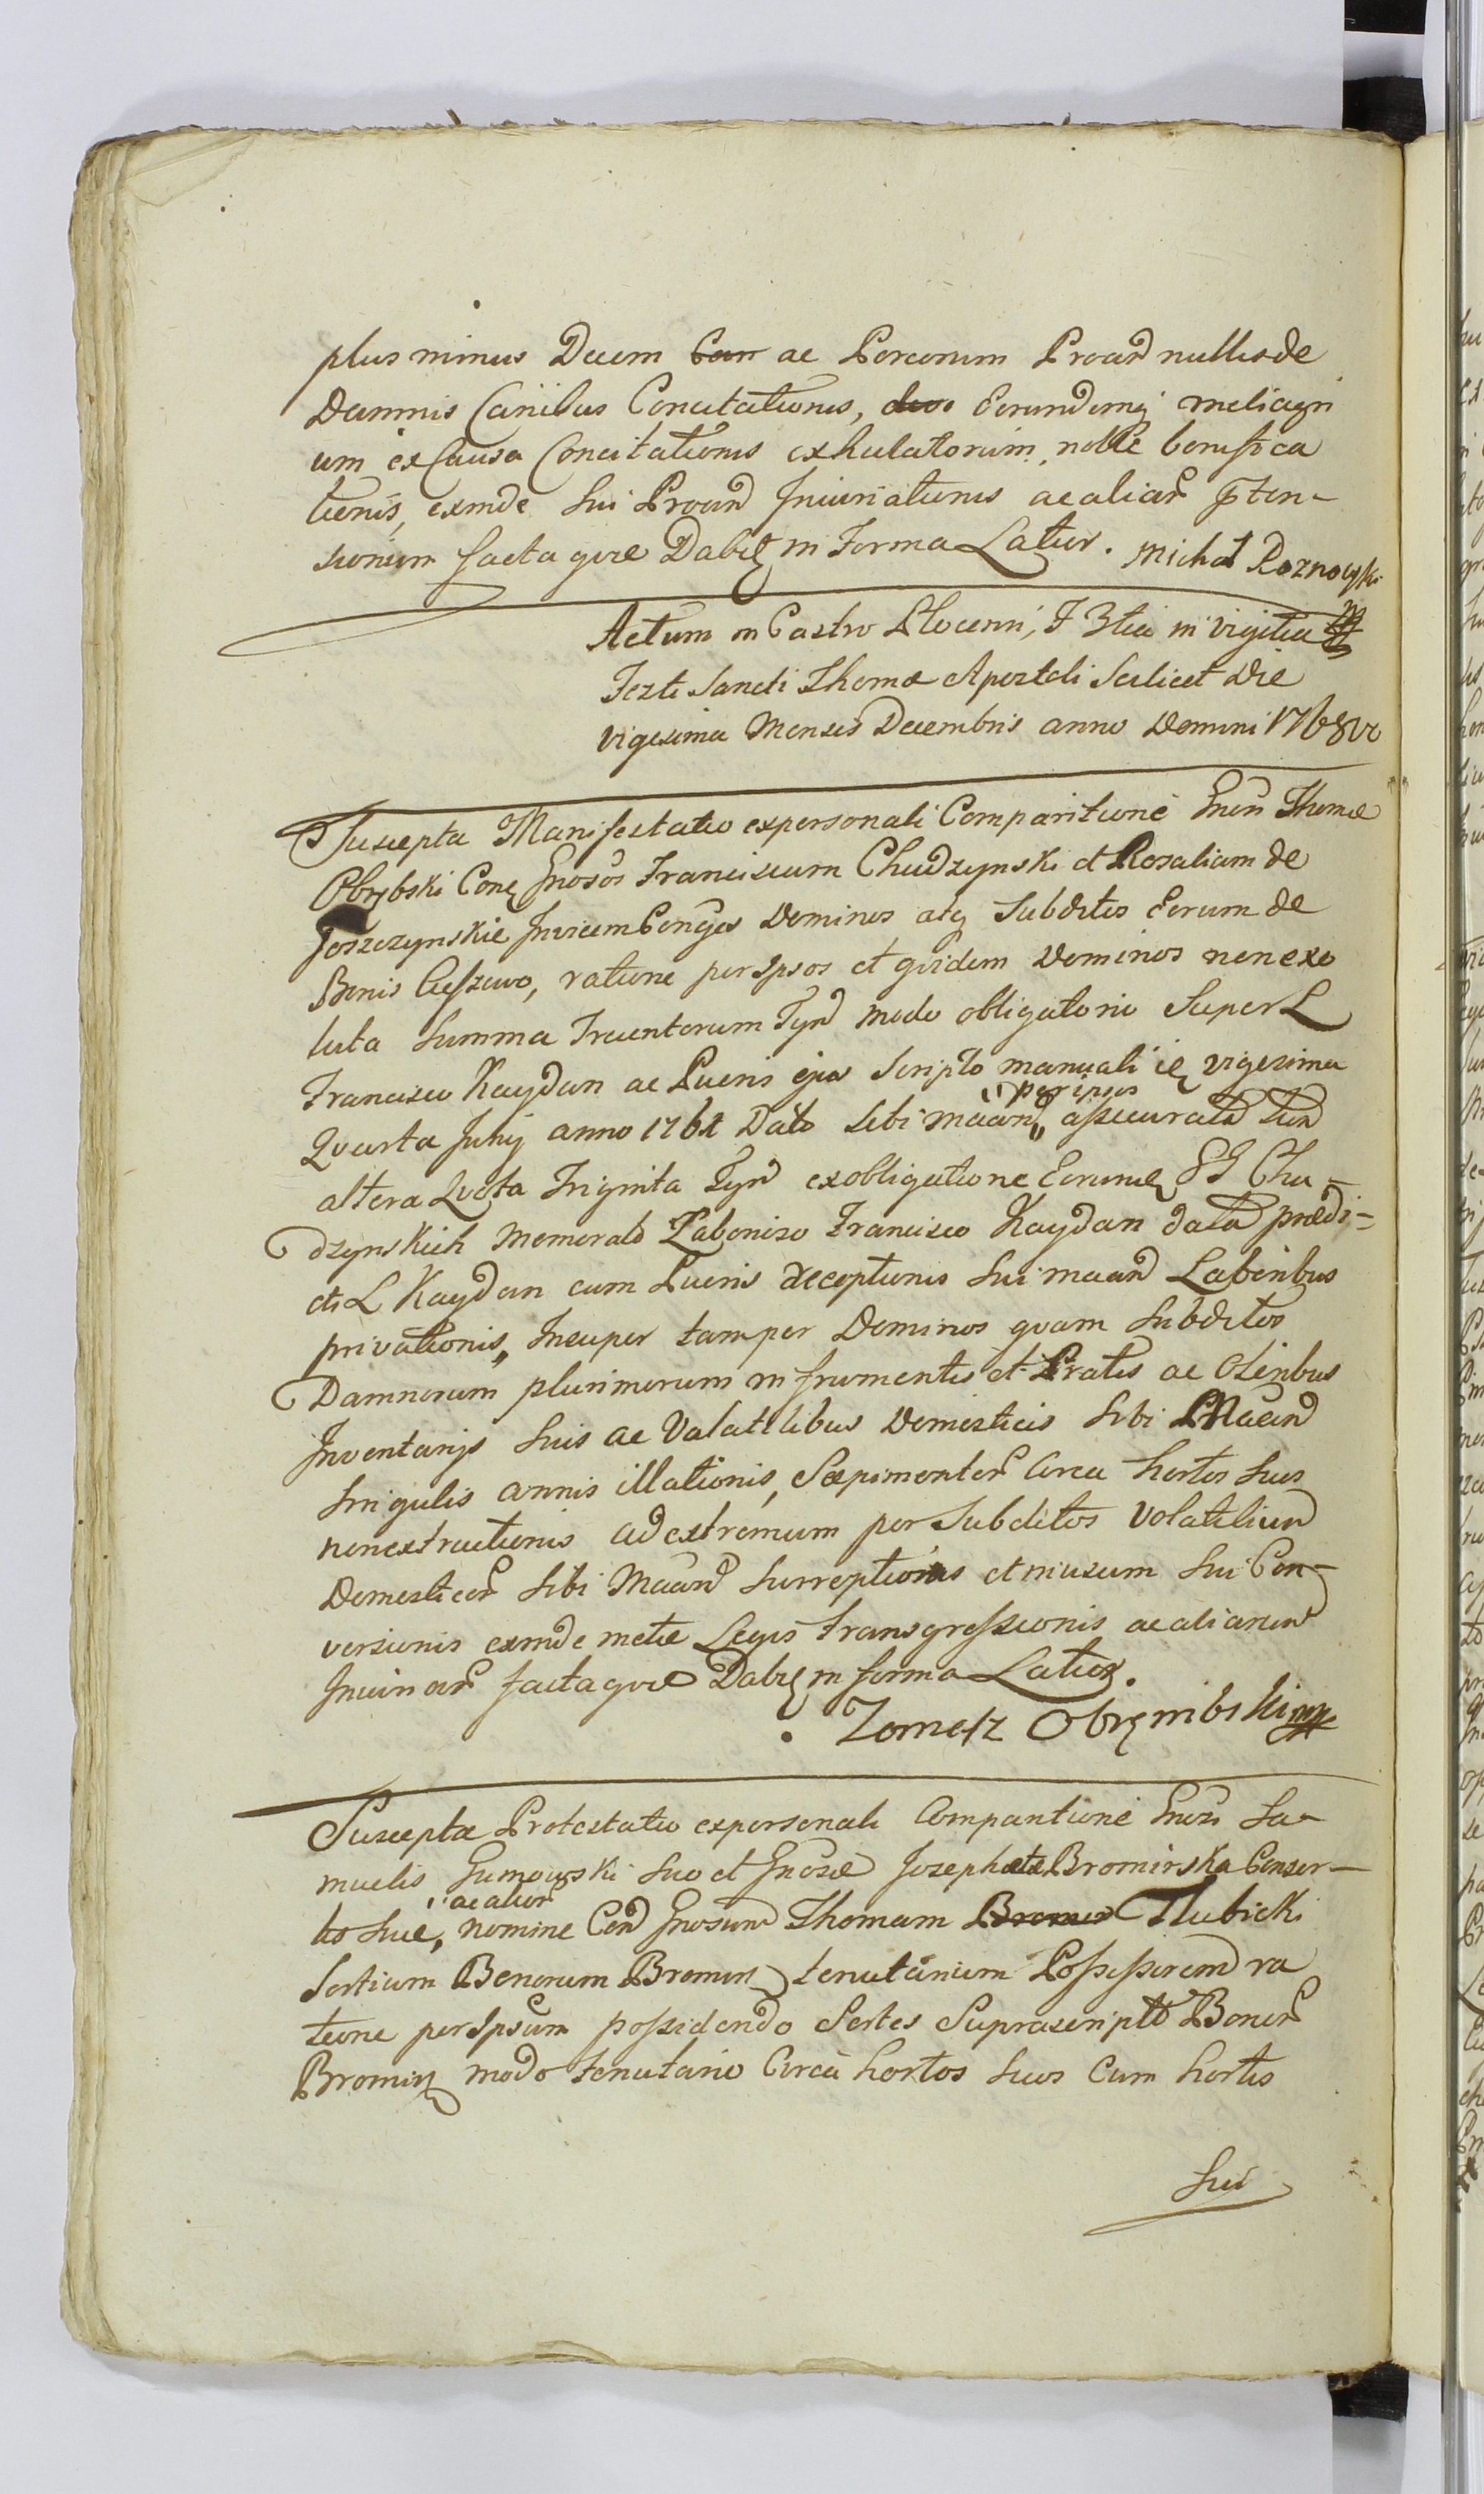 plus minus Decem Can ac Porcorum Proand nullis de
Damnis Canibus Concitationis, duos Eorundemq meliagri
um ex Causa Concitationis exhulatorum, nolle bonifica
tionis, exinde sui Proand Iniuriationis ac aliar pten-
sionum facta que Dabit in Forma Latior. Michał Roznowski
Actum in Castro Plocenn, F 3tia in Vigilia
Festi Sancti Thomæ Apostoli Scilicet Die
vigesima Mensis Decembris anno Domini 1768vo
Suscepta Manifestatio ex personali Comparitione Gnosi Thomæ
Obrębski Con Gnosos Franciscum Chudzynski et Rosaliam de
Goszczynskie Invicem Conges Dominos atq Subditos Eorum de
Bonis Cieszewo, ratione per Ipsos et quidem Dominos non exo
luta Summa Trecentorum Tynf modo obligatorio Super L
Francisco Kaydan ac Pueris ejus Scripto manuali vigesima
per ipsos
Quarta July anno 1761 Dato Sibi maand,, assecurata tum
altera Quota Triginta Tynf ex obligatione Eorum GG Chu-
dzynskich Memorato Laborioso Francisco Kaydan data prædi-
cti L Kaydan cum Pueris Receptionis Sui maand Laboribus
privationis,, Insuper tam per Dominos quam Subditos
Damnorum plurimorum in frumentis et Pratis ac Oleribus
Inventarijs Suis ac Volatilibus Domesticis Sibi Maand
Singulis annis illationis, Sæpimentor Circa hortos Suos
non extructionis ad extremum per Subditos Volatilium
Domesticor Sibi Maand Surreptionis et in usum Sui Con-
versionis exinde metæ Legis transgressionis ac aliarum
Iniuriar facta que Dabit in forma Latior.
Tomasz Obręmbski mp
Suscepta Protestatio ex personali Comparitione Gnosi Sa-
muelis Gumowski Suo et Gnosæ Josephatæ Bromirska Consor-
ac alior
tis Suæ, nomine Con Gnosum Thomam Bromis Tłubicki
Sortium Bonorum Bromirz tenutarium Possessorem ra
tione per Ipsum possidendo Sortes Suprascript Bonor
Bromirz modo tenutario Circa hortos Suos Cum hortis
Sui